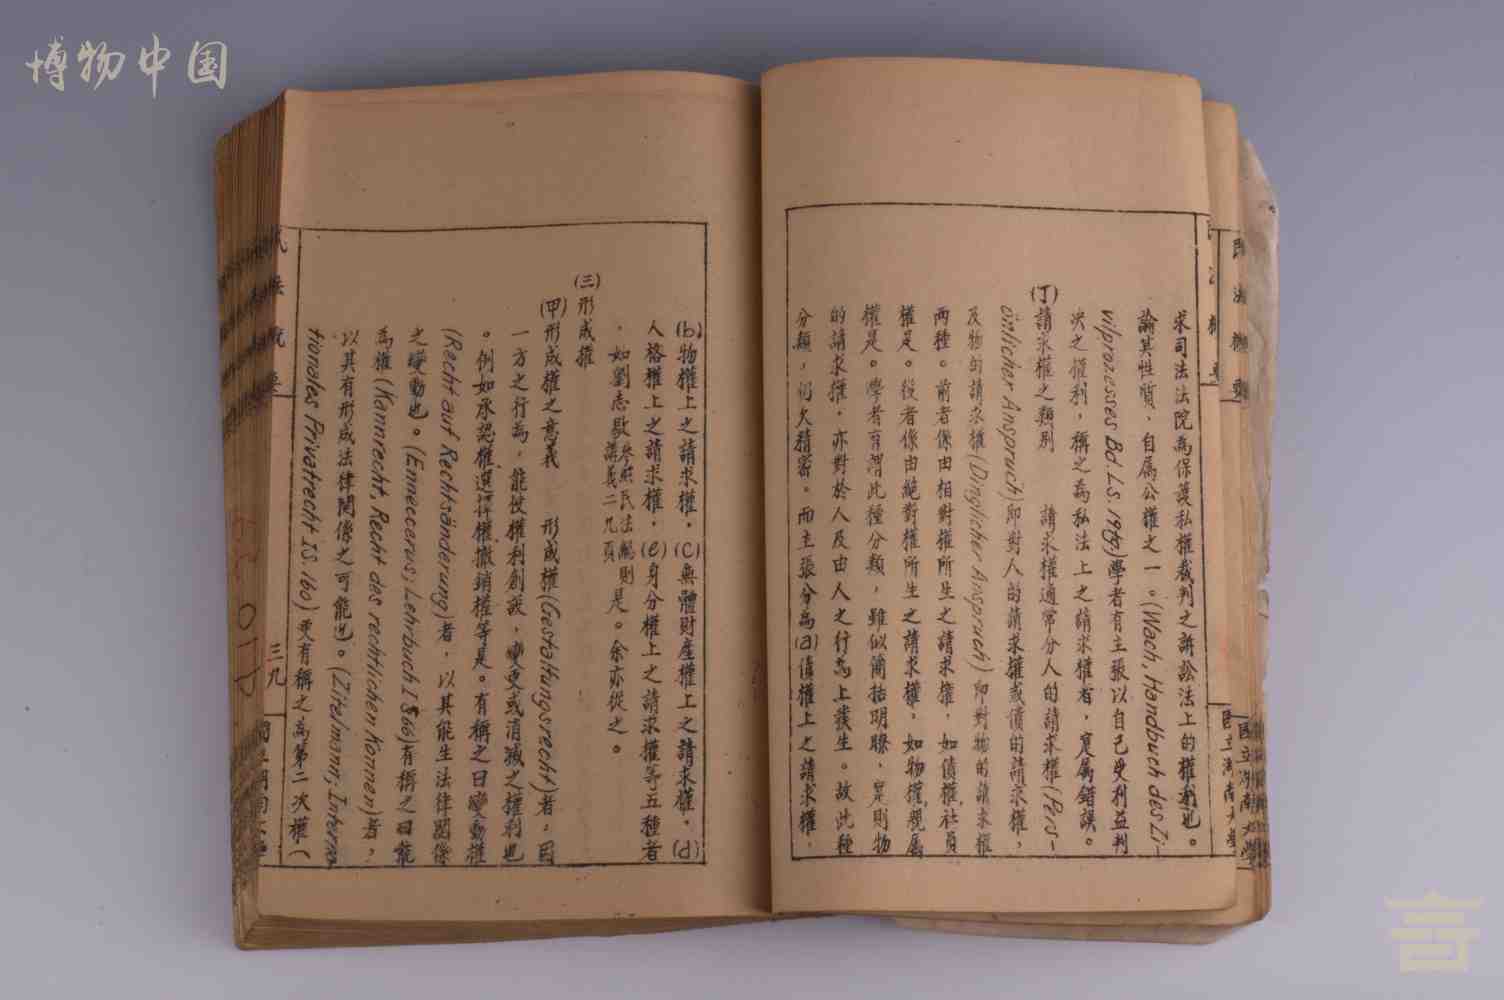 博物中国
求司法法院為保護私權裁判之訴訟法上的權利也。
論其性質，自屬公權之一。(Wach, Handbuch des Zi-
vilprozesses Bd. I. S. 19ffg.)學者有主張以自己受利益判
決之權利，稱之為私法上之請求權者，寔属錯誤。
(丁)請求權之類別　請求權通常分人的請求權(Pers-
önlicher Anspruch)即對人的請求權或債的請求權，
及物的請求權(Dinglicher Anspruch)即對物的請求權
兩種。前者係由相對權所生之請求權，如債權，社員
權是。後者係由絕對權所生之請求權，如物權，親屬
權是。學者有謂此種分類，雖似簡括明瞭，是則物
的請求權，亦對於人及由人之行為上發生。故此種
分類，仍欠精密。而主張分為(a)債權上之請求權，
(b)物權上之請求權，(c)無體財產權上之請求權，(d)
人格權上之請求權，(e)身分權上之請求權等五種者
，如劉志敭參照民法總則講義二九頁是。余亦從之。
(三)形成權
(甲)形成權之意義　形成權(Gestaltungsrecht)者，因
一方之行為，能使權利創設，變更或消滅之權利也
。例如承認權選擇權撤銷權等是。有稱之曰變動權
(Recht auf Rechtsänderung)者，以其能生法律關係
之變動也。(Enneccerus; Lehrbuch I S 66)有稱之曰能
為權(Kannrecht, Recht des rechtlichen Konnen)者，
以其有形成法律關係之可能也。(Zitelmann; Interna-
tionales Privatrecht I S. 160)更有稱之為第二次權(
三九
民法概要
國立湖南大學